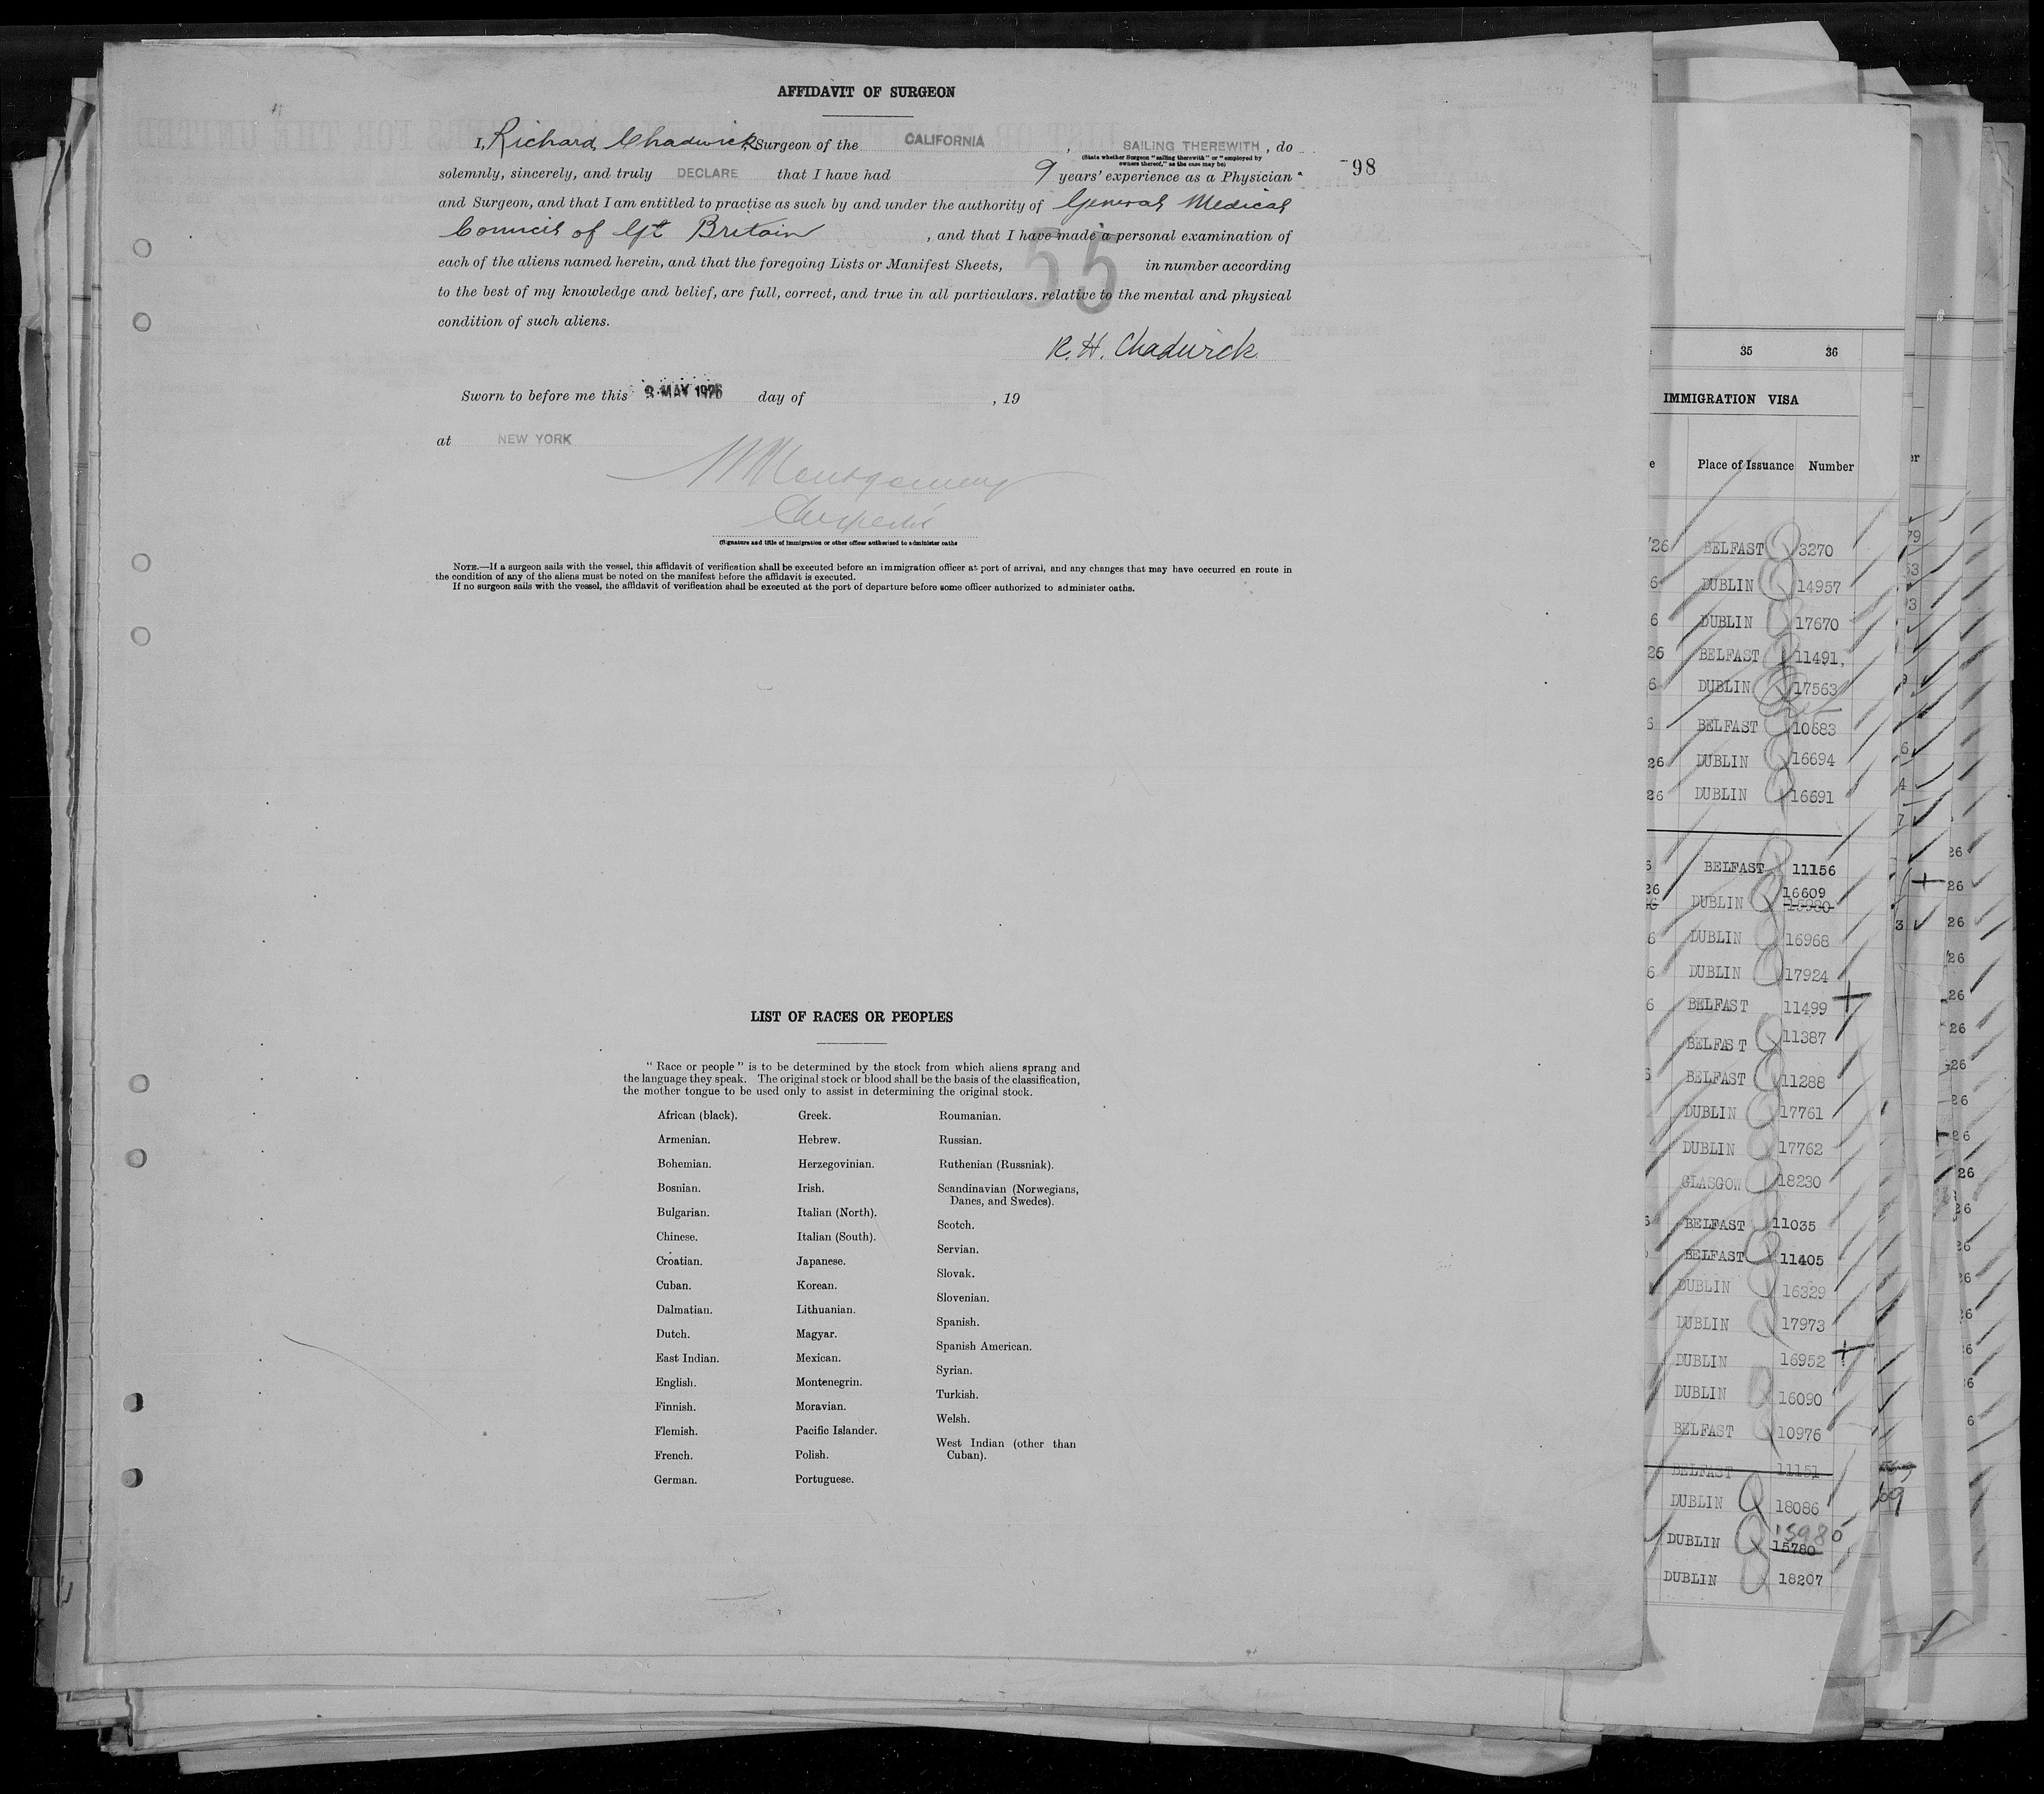 AFFIDAVIT OF SURGEON
I, Richard Chadwick, Surgeon of the CALIFORNIA, SAILING THEREWITH, do
(State whether Surgeon "sailing therewith" or "employed by
owners thereof," as the case may be)
98
solemnly, sincerely, and truly DECLARE that I have had 9 years' experience as a Physician
and Surgeon, and that I am entitled to practise as such by and under the authority of General Medical
Council of Gt Britain, and that I have made a personal examination of
each of the aliens named herein, and that the foregoing Lists or Manifest Sheets, 55 in number according
to the best of my knowledge and belief, are full, correct, and true in all particulars. relative to the mental and physical
condition of such aliens.
R. H. Chadwick
Sworn to before me this MAY 1926 day of , 19
at NEW YORK
Montgomery
(Signature and title of immigration or other officer authorized to administer oaths
NOTE.—If a surgeon sails with the vessel, this affidavit of verification shall be executed before an immigration officer at port of arrival, and any changes that may have occurred en route in
the condition of any of the aliens must be noted on the manifest before the affidavit is executed.
If no surgeon sails with the vessel, the affidavit of verification shall be executed at the port of departure before some officer authorized to administer oaths.
LIST OF RACES OR PEOPLES
"Race or people" is to be determined by the stock from which aliens sprang and
the language they speak. The original stock or blood shall be the basis of the classification,
the mother tongue to be used only to assist in determining the original stock.
African (black).
Armenian.
Bohemian.
Bosnian.
Bulgarian.
Chinese.
Croatian.
Cuban.
Dalmatian.
Dutch.
East Indian.
English.
Finnish.
Flemish.
French.
German.
Greek.
Hebrew.
Herzegovinian.
Irish.
Italian (North).
Italian (South).
Japanese.
Korean.
Lithuanian.
Magyar.
Mexican.
Montenegrin.
Moravian.
Pacific Islander.
Polish.
Portuguese.
Roumanian.
Russian.
Ruthenian (Russniak).
Scandinavian (Norwegians,
Danes, and Swedes).
Scotch.
Servian.
Slovak.
Slovenian.
Spanish.
Spanish American.
Syrian.
Turkish.
Welsh.
West Indian (other than
Cuban).
35 36
IMMIGRATION VISA
Place of Issuance Number
26 BELFAST Q 3270
6 DUBLIN Q 14957
6 DUBLIN 17670
26 BELFAST Q 11491,
6 DUBLIN Q 17563
6 BELFAST 10683
26 DUBLIN Q 16694
26 DUBLIN Q 16691
6 BELFAST Q 11156
26 16609
6 DUBLIN Q 15980
6 DUBLIN 16968
6 DUBLIN Q 17924
6 BELFAST 11499
BELFAST Q 11387
6 BELFAST Q 11288
DUBLIN Q 17761
DUBLIN Q 17762
GLASGOW Q 18230
6 BELFAST 11035
BELFAST Q 11405
DUBLIN Q 16329
DUBLIN Q 17973
DUBLIN 16952
DUBLIN Q 16090
BELFAST Q 10976
BELFAST 11151
DUBLIN Q 18086
15980
DUBLIN Q 15780
DUBLIN Q 18207